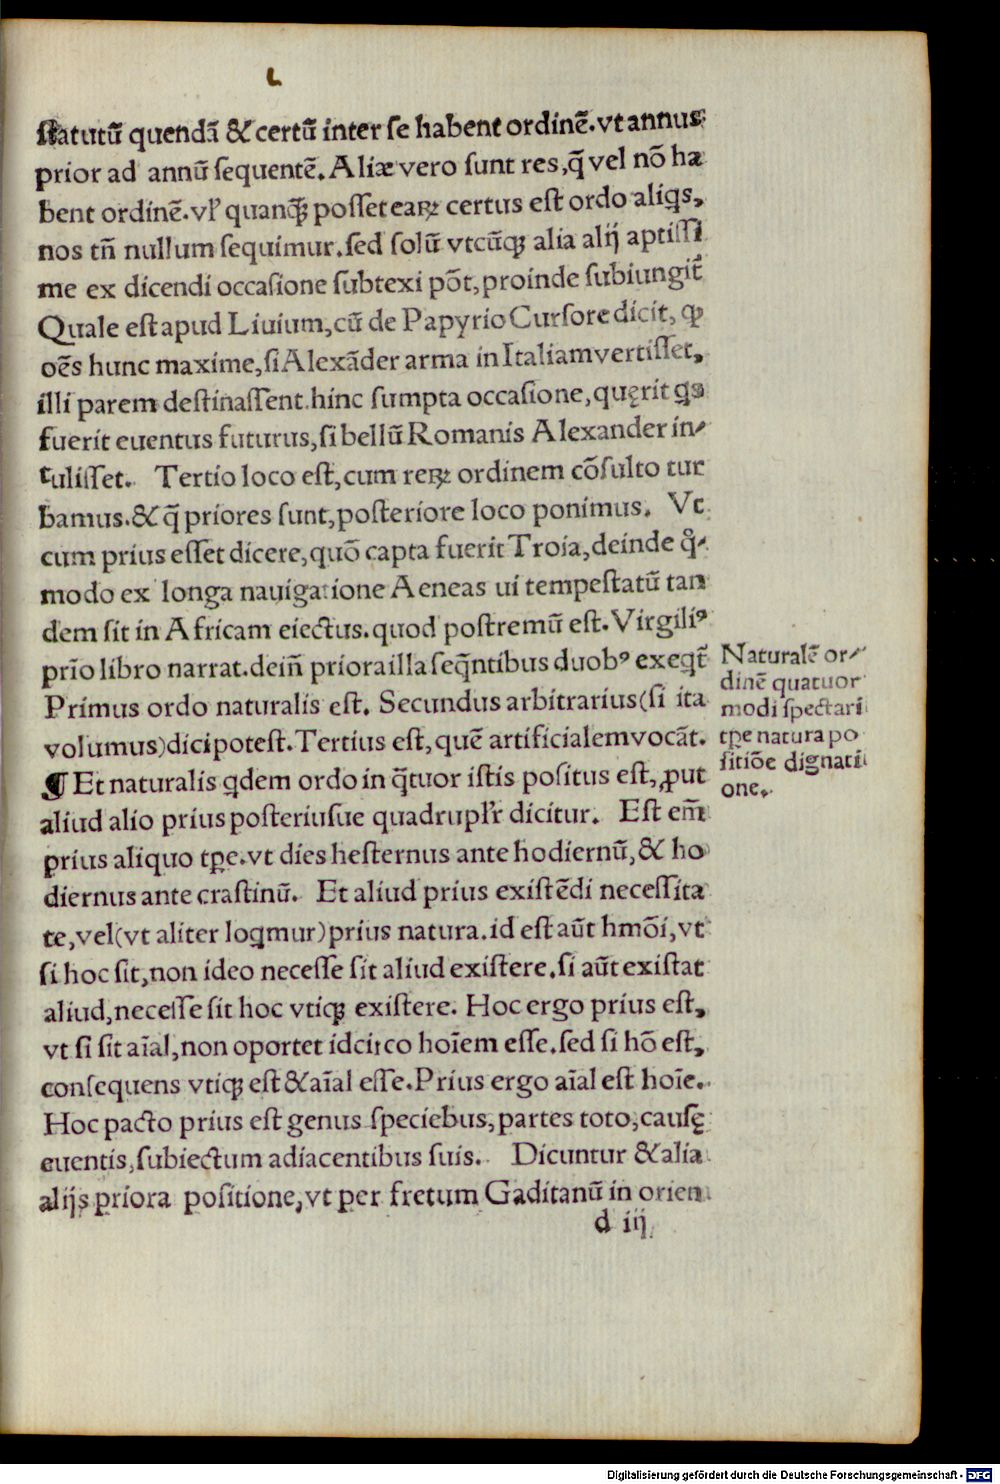 ſtatutū quendā & certū inter ſe habent ordinē. vt annus
prior ad annū ſequentē. Aliæ vero ſunt res, q̄ vel nō ha
bent ordinē. vl' quanqꝫ poſſet eaꝝ certus eſt ordo aliqs,
nos tn̄ nullum ſequimur. ſed ſolū vtcūqꝫ alia alij aptiſſi
me ex dicendi occaſione ſubtexi pōt, proinde ſubiungit̄
Quale eſt apud Liuium, cū de Papyrio Curſore dicit, ꝙ
oēs hunc maxime, ſi Alexāder arma in Italiam vertiſſet,
illi parem deſtinaſſent. hinc ſumpta occaſione, quęrit qs
fuerit euentus futurus, ſi bellū Romanis Alexander in⸗
tuliſſet. Tertio loco eſt, cum reꝝ ordinem cōſulto tur
bamus. & q̄ priores ſunt, poſteriore loco ponimus. Vt
cum prius eſſet dicere, quō capta fuerit Troia, deinde q̊⸗
modo ex longa nauigatione Aeneas ui tempeſtatū tan
dem ſit in Africam eiectus. quod poſtremū eſt. Virgiliꝰ
prīo libro narrat. dein̄ priora illa ſeq̄ntibus duobꝰ exeqt̄
Primus ordo naturalis eſt. Secundus arbitrarius (ſi ita
volumus) dici poteſt. Tertius eſt, quē artificialem vocāt.
¶ Et naturalis qdem ordo in q̄tuor iſtis poſitus eſt, ꝓut
aliud alio prius poſteriusue quadrupl'r dicitur. Eſt em̄
prius aliquo tꝑe. vt dies heſternus ante hodiernū, & ho
diernus ante craſtinū. Et aliud prius exiſtēdi neceſſita
te, vel (vt aliter loqmur) prius natura. id eſt aūt hmōi, vt
ſi hoc ſit, non ideo neceſſe ſit aliud exiſtere. ſi aūt exiſtat
aliud, neceſſe ſit hoc vtiqꝫ exiſtere. Hoc ergo prius eſt,
vt ſi ſit aīal, non oportet idcirco hoīem eſſe. ſed ſi hō eſt,
conſequens vtiqꝫ eſt & aīal eſſe. Prius ergo aīal eſt hoīe.
Hoc pacto prius eſt genus ſpeciebus, partes toto, cauſę
euentis, ſubiectum adiacentibus ſuis. Dicuntur & alia
alijs priora poſitione, vt per fretum Gaditanū in orien
d iij
Naturalē or⸗
dinē quatuor
modi ſpectari
tꝑe natura po
ſitiōe dignati
one.
Digitalisierung gefördert durch die Deutsche Forschungsgemeinschaft - DFG